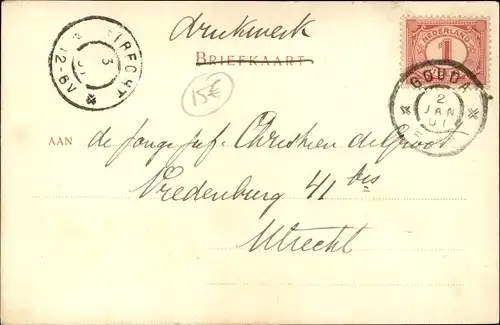 drukwerk
BRIEFKAART
NEDERLAND
1
UTRECHT
3
12-9V
GOUDA
2
JAN
01
15€
AAN de Jonge Juf. Christien de Groot
Vredenburg 41 bis
Utrecht